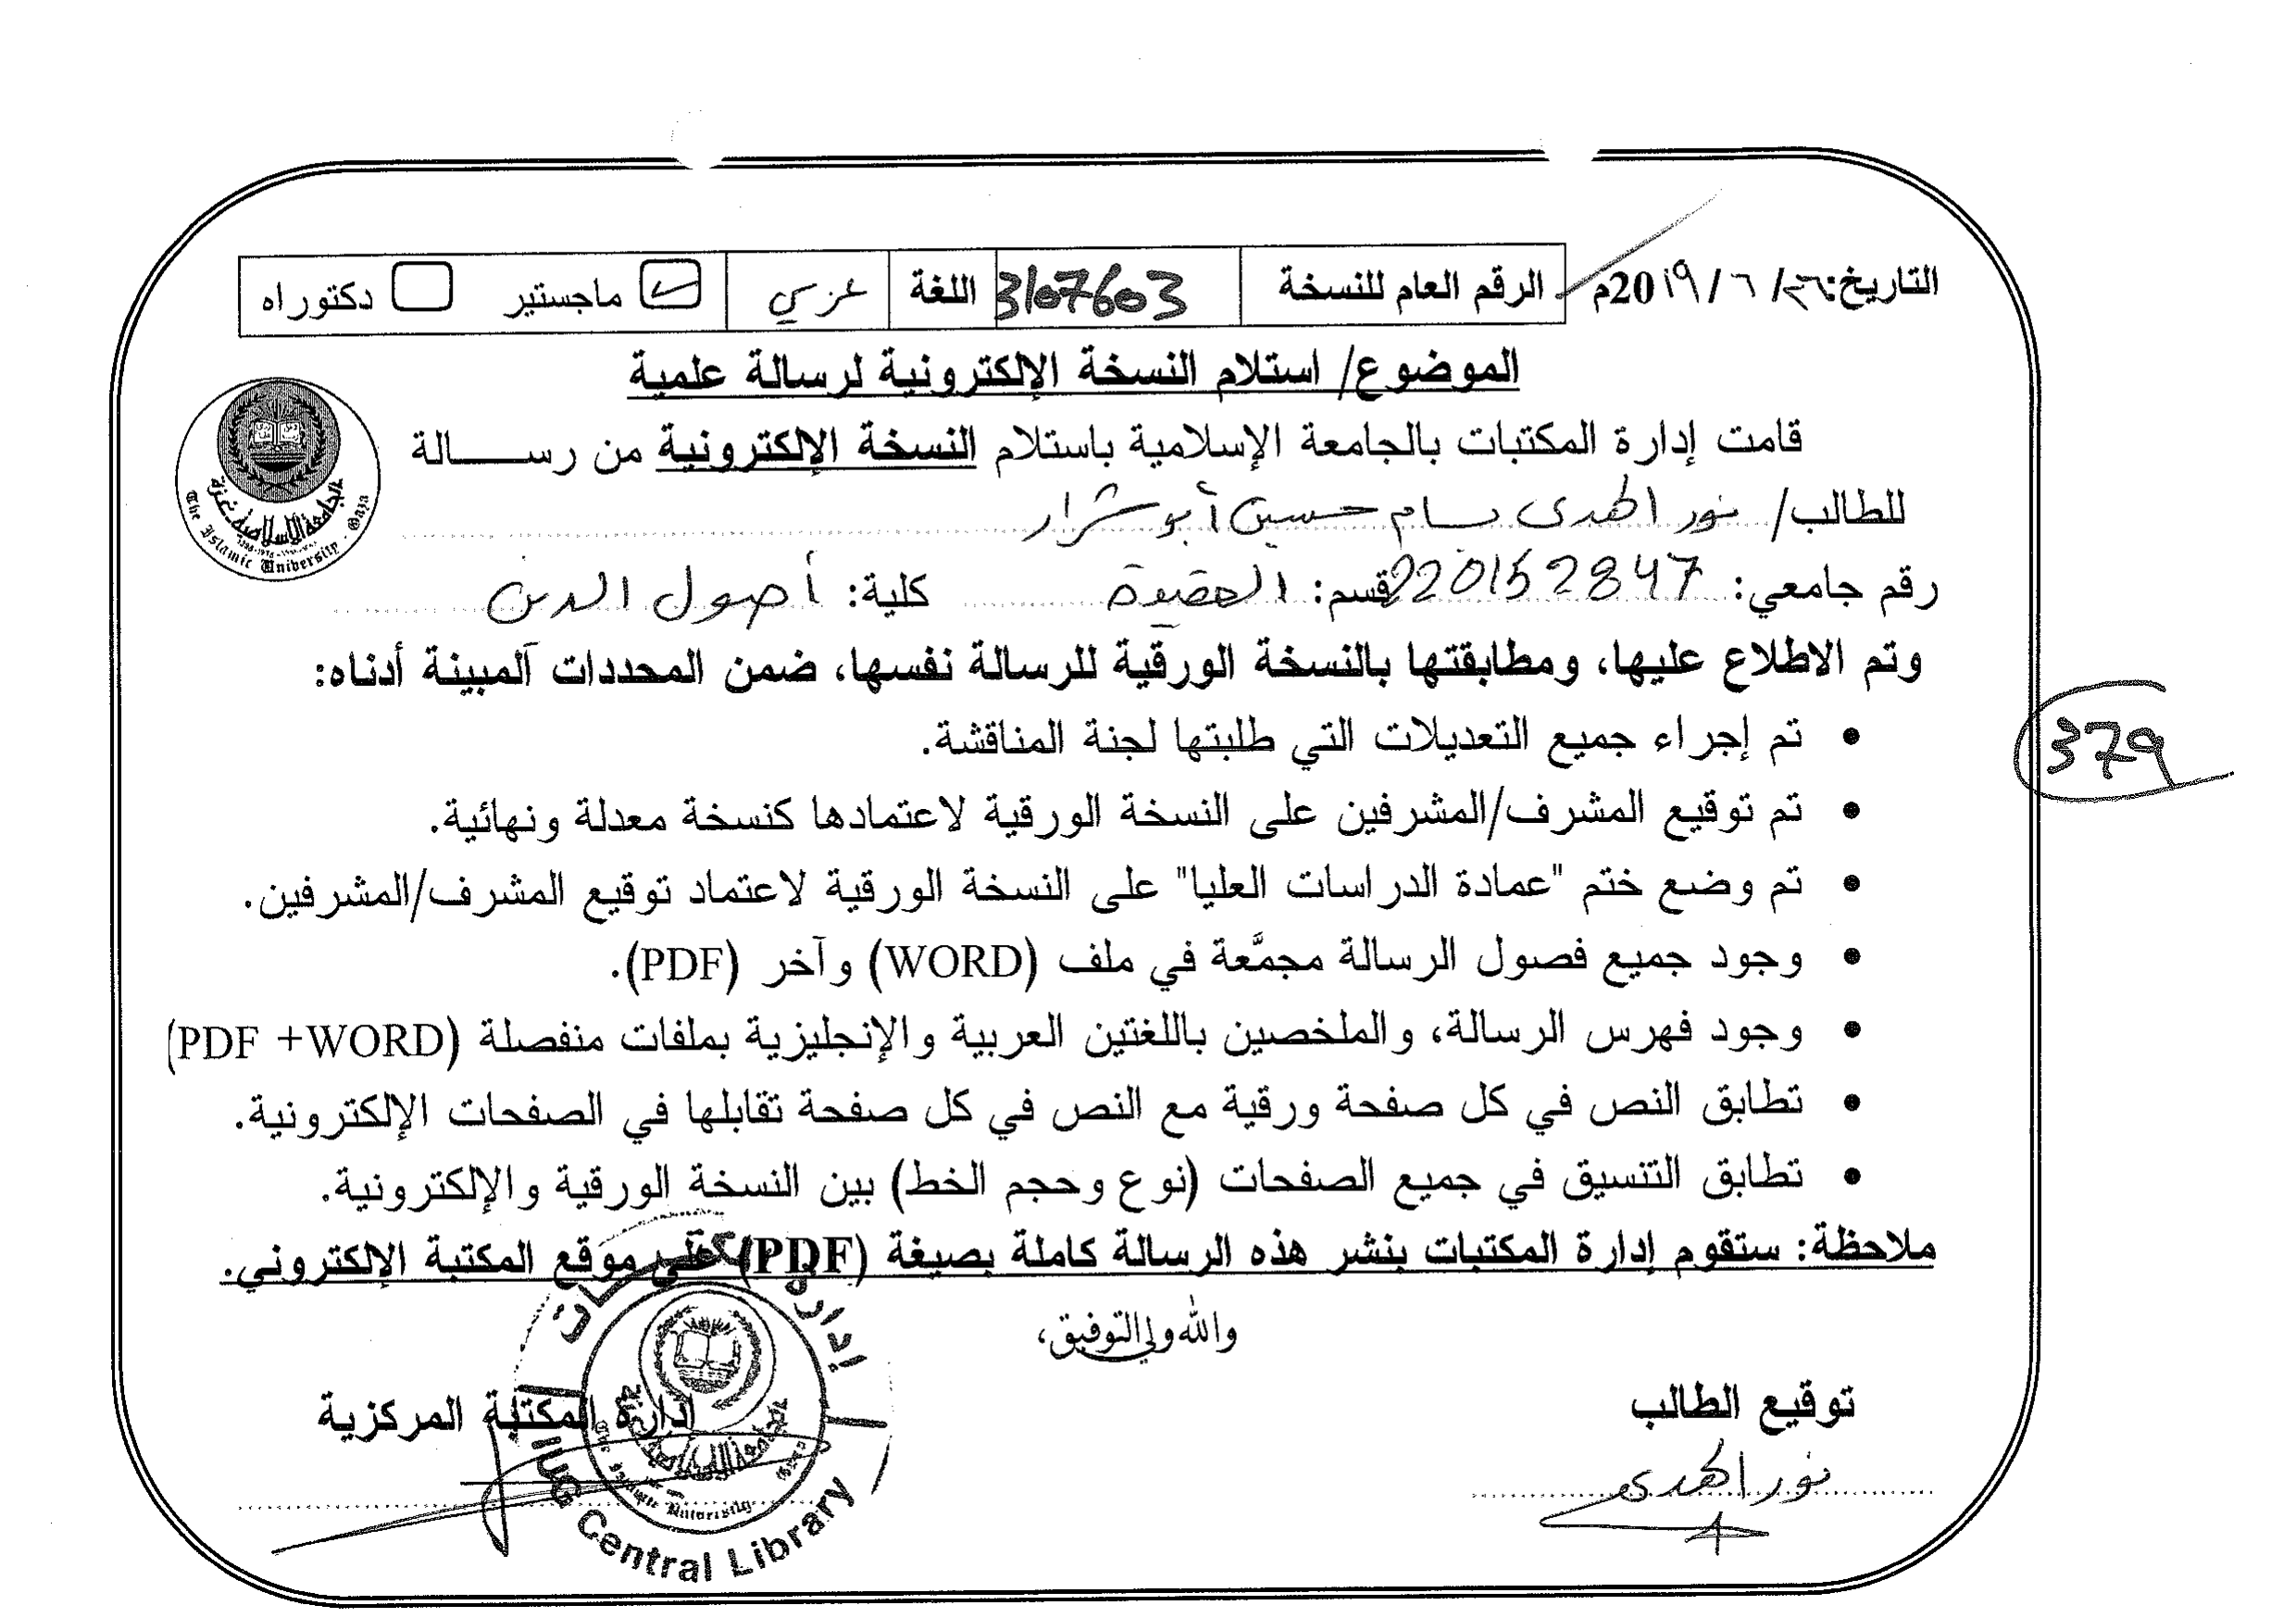 التاريخ: ٢٦/ ٦ /20١٩م الرقم العام للنسخة 3107603 اللغة عربي ماجستير دكتوراه
الموضوع/ استلام النسخة الإلكترونية لرسالة علمية
قامت إدارة المكتبات بالجامعة الإسلامية باستلام النسخة الإلكترونية من رســـالة
للطالب/ نور الهدى بسام حسين أبو شرار
رقم جامعي: 220152847 قسم: العقيدة كلية: أصول الدين
وتم الاطلاع عليها، ومطابقتها بالنسخة الورقية للرسالة نفسها، ضمن المحددات المبينة أدناه:
• تم إجراء جميع التعديلات التي طلبتها لجنة المناقشة.
379
• تم توقيع المشرف/المشرفين على النسخة الورقية لاعتمادها كنسخة معدلة ونهائية.
• تم وضع ختم "عمادة الدراسات العليا" على النسخة الورقية لاعتماد توقيع المشرف/المشرفين.
• وجود جميع فصول الرسالة مجمَّعة في ملف (WORD) وآخر (PDF).
• وجود فهرس الرسالة، والملخصين باللغتين العربية والإنجليزية بملفات منفصلة (PDF +WORD)
• تطابق النص في كل صفحة ورقية مع النص في كل صفحة تقابلها في الصفحات الإلكترونية.
• تطابق التنسيق في جميع الصفحات (نوع وحجم الخط) بين النسخة الورقية والإلكترونية.
ملاحظة: ستقوم إدارة المكتبات بنشر هذه الرسالة كاملة بصيغة (PDF) على موقع المكتبة الإلكتروني.
والله ولي التوفيق،
توقيع الطالب إدارة المكتبة المركزية
نور الهدى
الجامعة الإسلامية غزة
The Islamic University - Gaza
إدارة المكتبات
Central Library